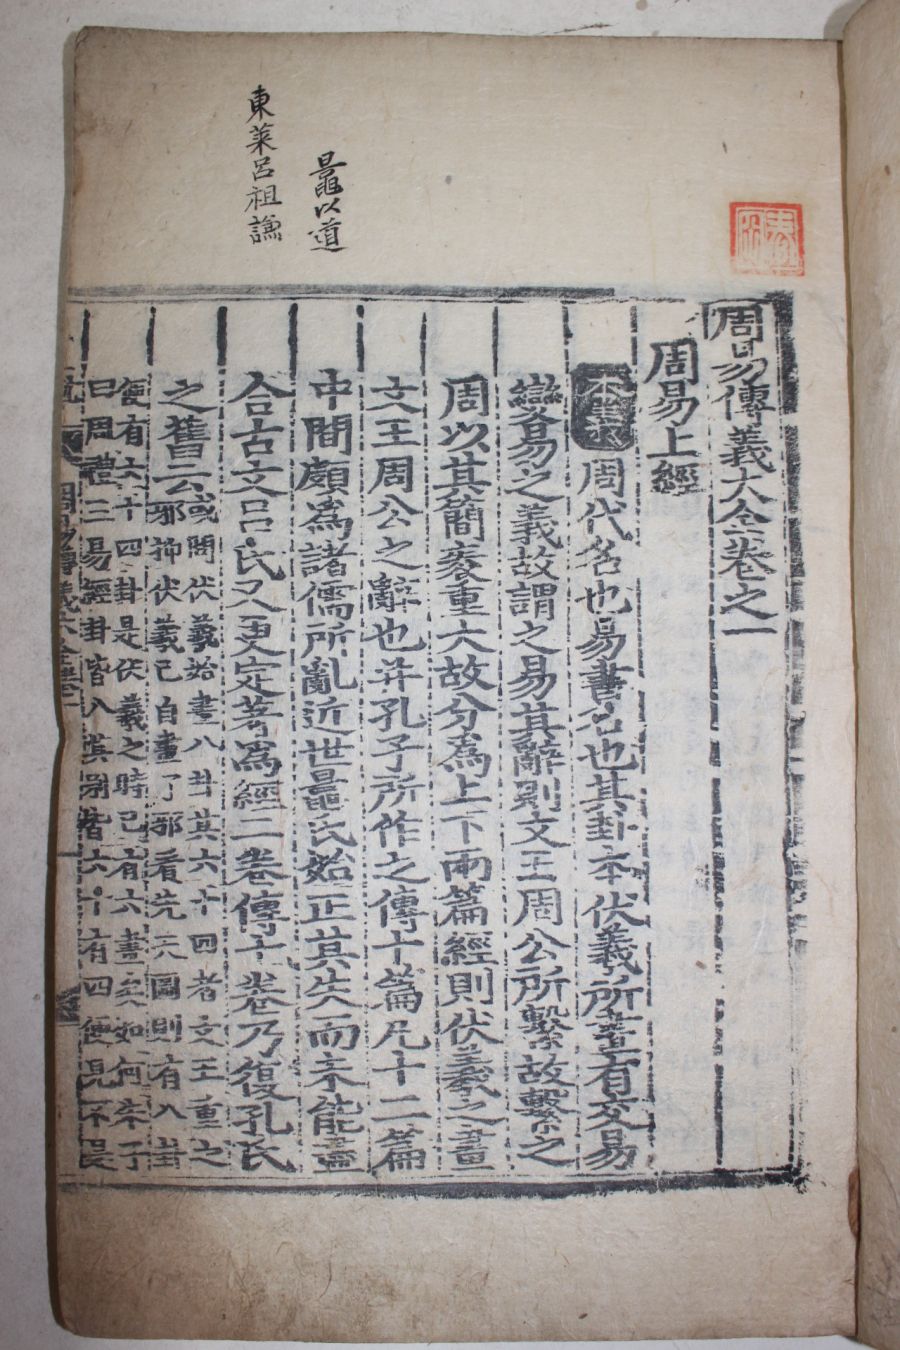 鼂以道
東萊呂祖謙
周易傳義大全卷之一
周易上經
本義 周代名也易書名也其卦本伏羲所畫有交易
變易之義故謂之易其辭則文王周公所繫故繫之
周以其簡袠重大故分爲上下兩篇經則伏羲之畫
文王周公之辭也幷孔子所作之傳十篇凡十二篇
中間頗爲諸儒所亂近世鼂氏始正其失而未能盡
合古文呂氏又更定著爲經二卷傳十卷乃復孔氏
之舊云
或問伏羲始畫八卦其六十四者文王重之
邪抑伏羲已自畫了邪看先天圖則有八卦
便有六十四卦是伏羲之時已有六畫矣如何朱子
曰周禮三易經卦皆八其別皆六十有四便見不是